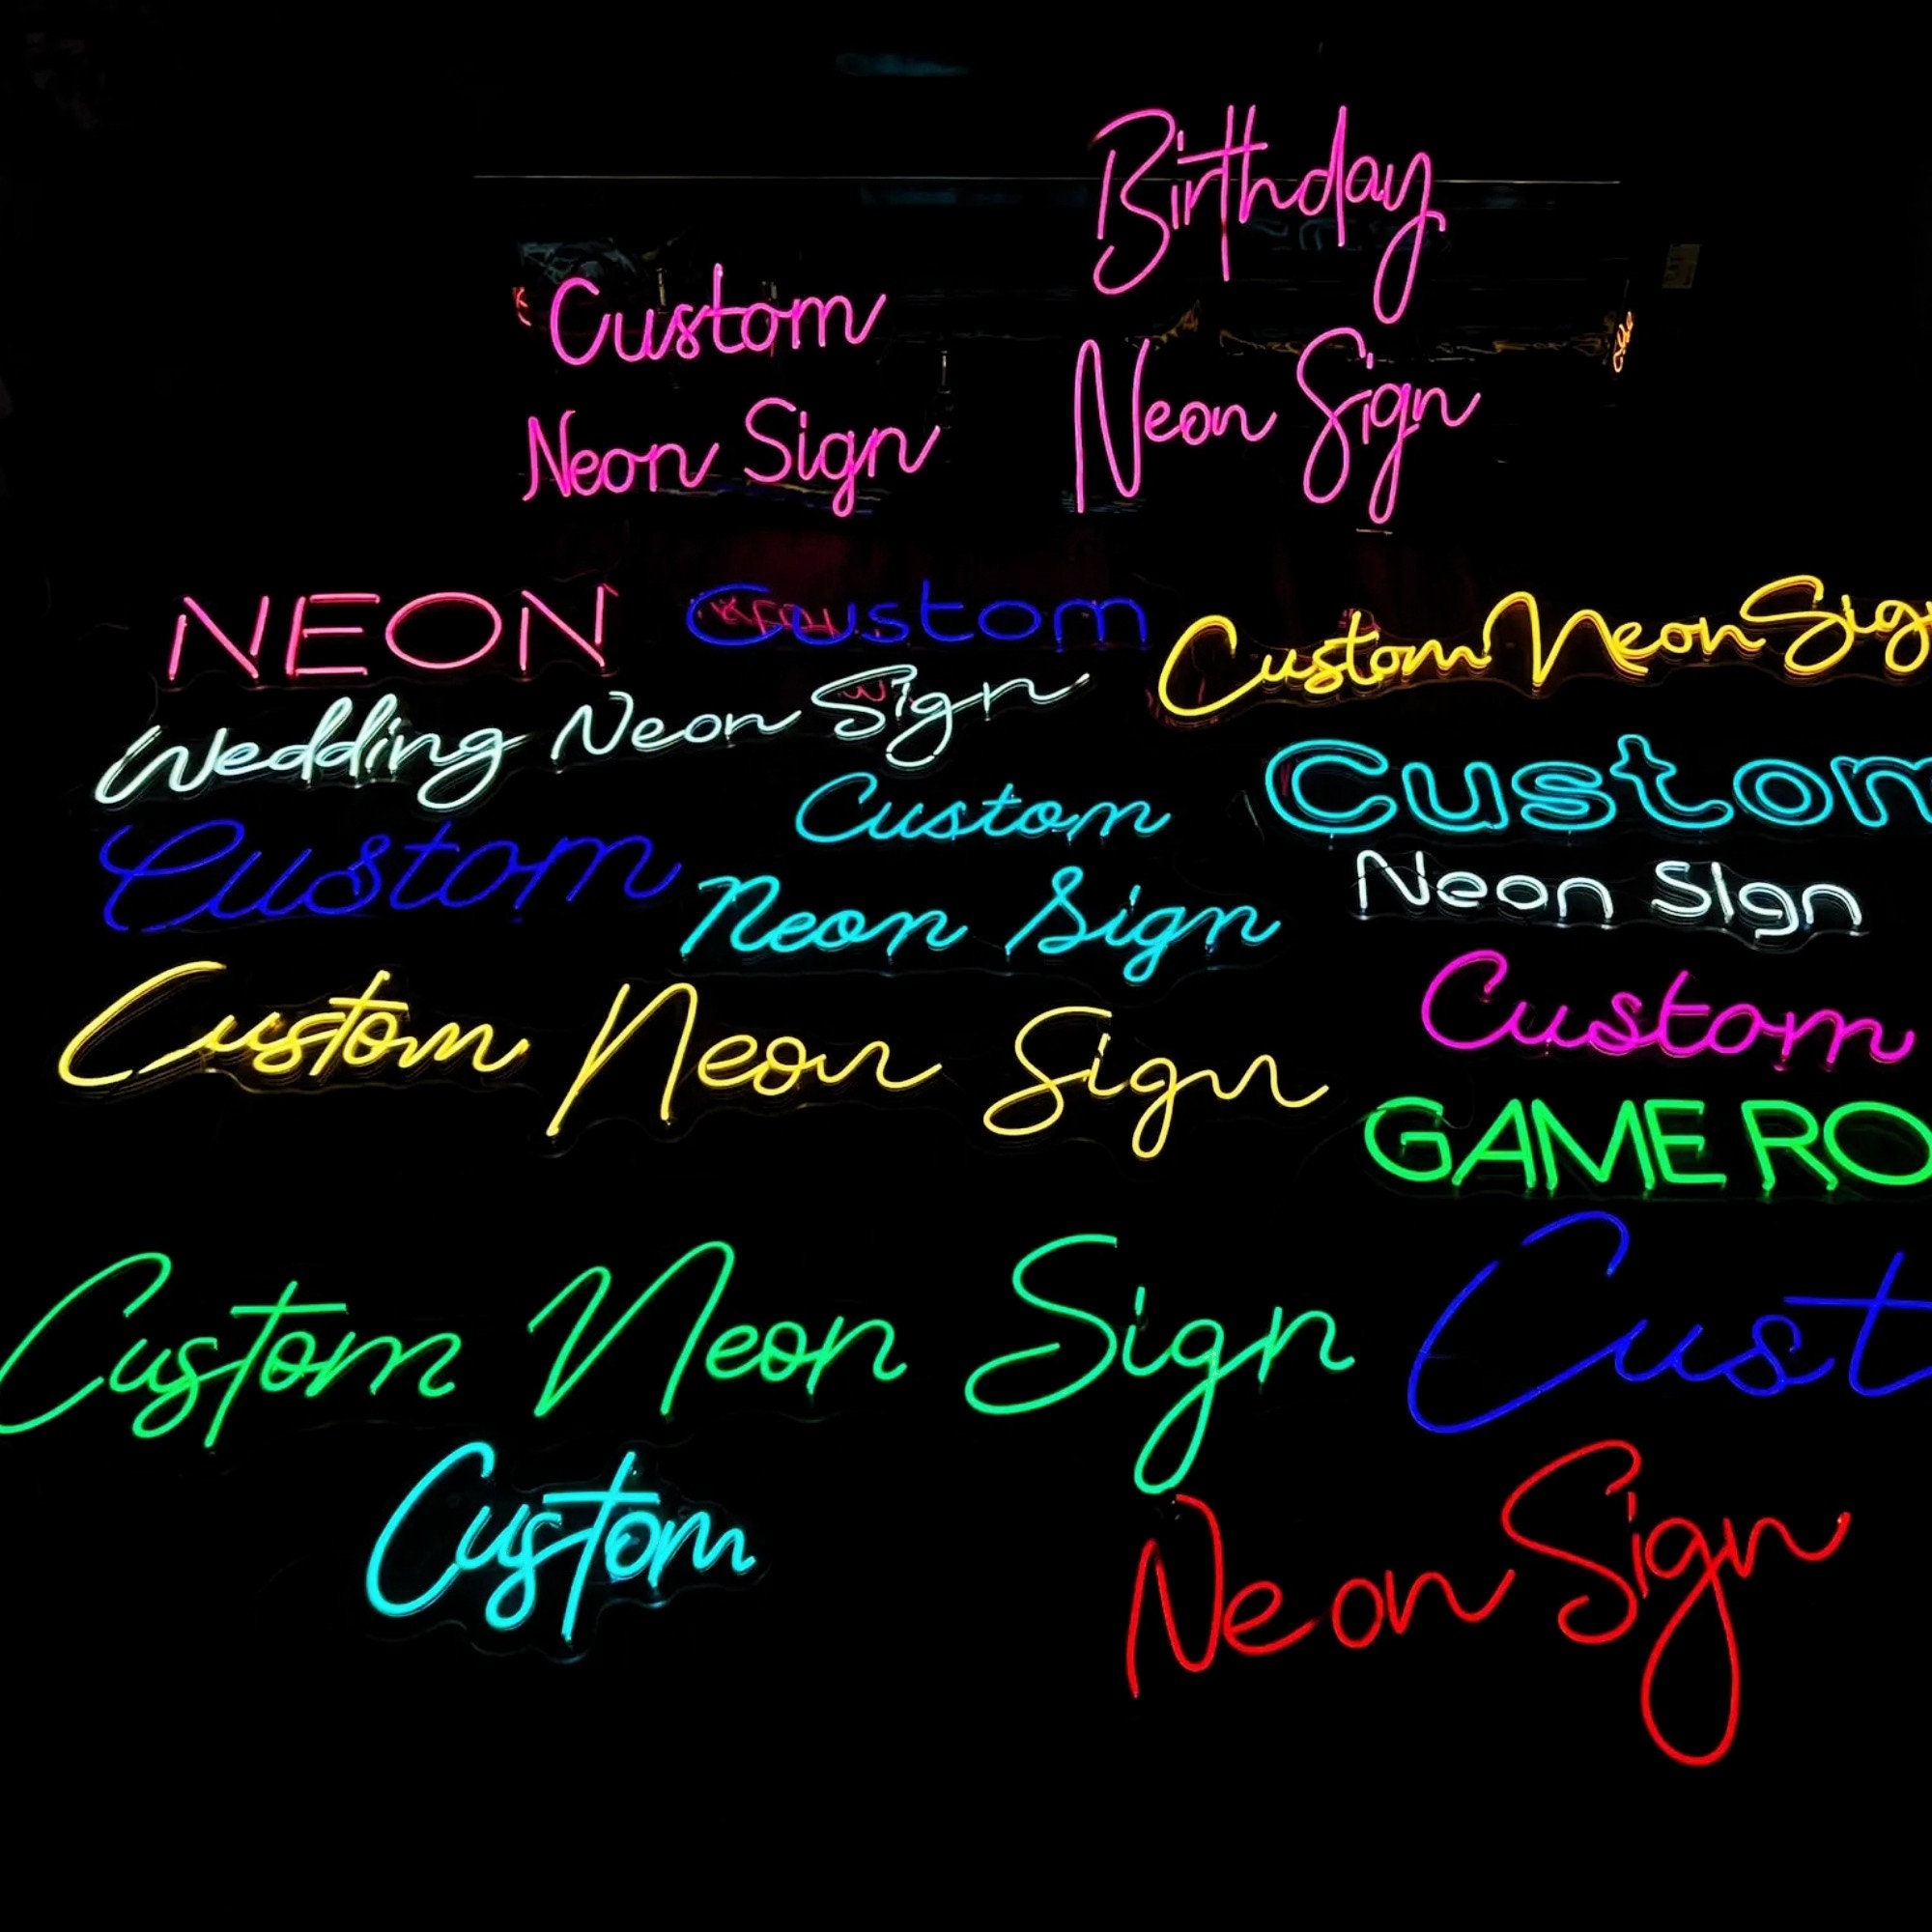 Birthday
Neon Sign
Custom
Neon Sign
NEON
Custom
Custom Neon Sig
Wedding Neon Sign
Custom
Neon Sign
Custom
Neon SIgn
Custom
Custom
Custom Neon Sign
GAME RO
Custom Neon Sign
Cust
Neon Sign
Custom